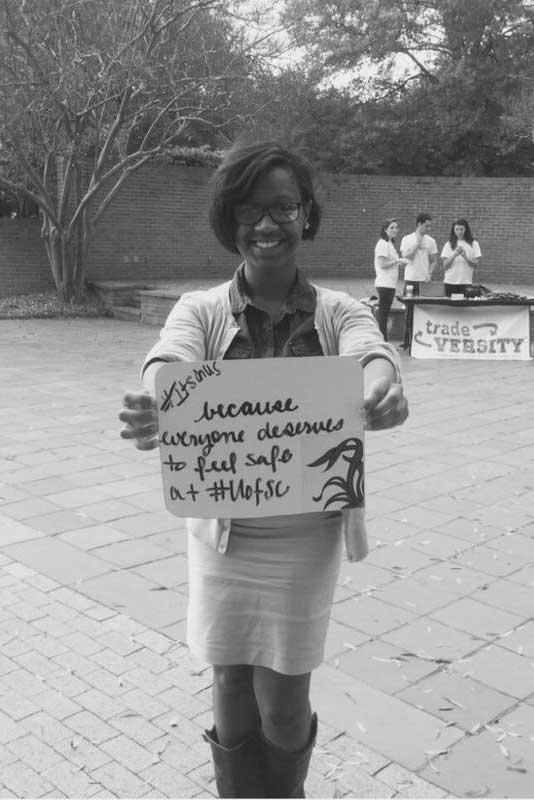 #ItsOnUs
because
everyone deserves
to feel safe
at #UofSC
trade
VERSITY